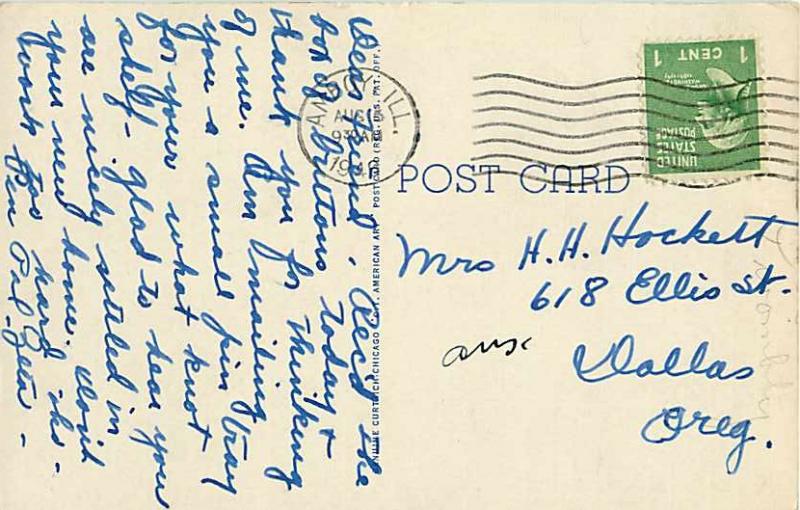 Dear Friend. Rec'd the
box of Buttons today &
thank you for thinking
of me. Am mailing
you a small pin tray
for your what knot
shelf - glad to hear you
are nicely settled in
your new home. Don't
work too hard
Pen Pal - Zetta -
AMBOY, ILL.
AUG 15
9 30 AM
POST CARD
GENUINE CURTEICH-CHICAGO "C.T. AMERICAN ART" POST CARD (REG. U.S. PAT. OFF.)
1 CENT 1
WASHINGTON
UNITED
STATES
POSTAGE
Mrs H. H. Hockett
618 Ellis St.
ans.
Dallas
Oreg.